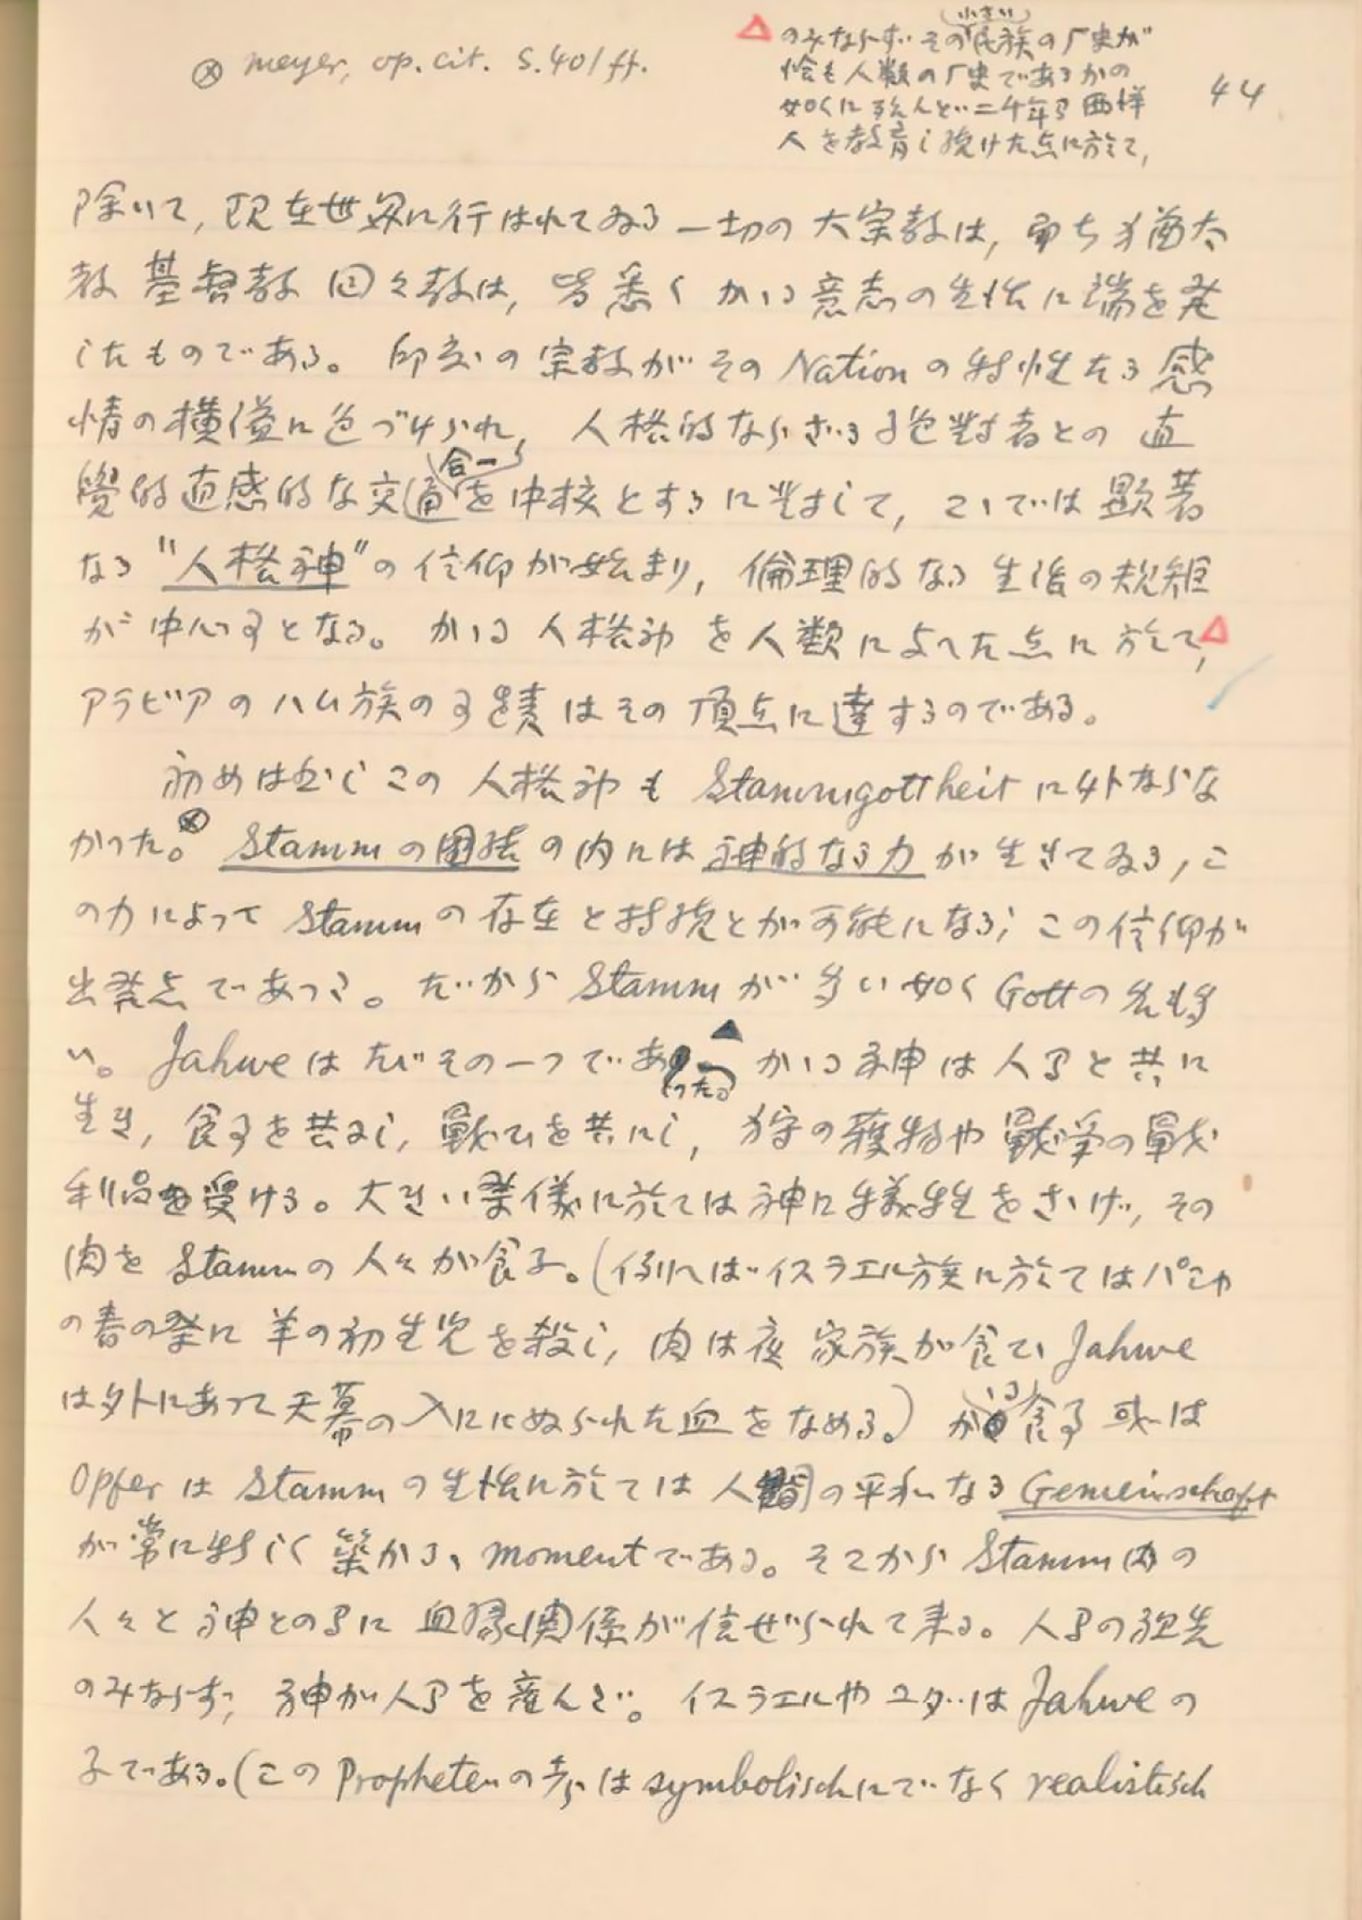 ⊗ Meyer, op. cit. S. 401 ff.
△ のみならず その(小さい)民族の歴史が
恰も人類の歴史であるかの
如くに殆んど二千年間西洋
人を教育し続けた点に於て,
44
除いて, 現在世界に行はれてゐる一切の大宗教は, 即ち猶太
教 基督教 回々教は, 皆悉く かゝる意志の生活に端を発
したものである。 印度の宗教がその Nation の特性たる感
情の横溢に色づけられ, 人格的ならざる絶對者との 直
覺的直感的な交通(合一)を中核とするに対して, こゝでは顕著
なる "人格神" の信仰が始まり, 倫理的なる生活の規矩
が中心事となる。 かゝる人格神を人類に与へた点に於て,△
アラビアのハム族の事蹟はその頂点に達するのである。
初めは然しこの人格神も Stammgottheit に外ならな
かった。⊗ Stammの團結の内には神的なる力が生きてゐる, こ
の力によって Stamm の存在と持続とが可能になる; この信仰が
出発点であつた。 だから Stamm が多い如く Gott の名も多
い。 Jahwe はたゞその一つであつた。▲ かゝる神は人間と共に
生き, 食事を共にし, 戰ひを共にし, 狩の獲物や戰爭の戰
利品を受ける。 大きい祭儀に於ては神に犠牲をさゝげ, その
肉を Stamm の人々が食ふ。(例へばイスラエル族に於てはパスカ
の春の祭に羊の初生児を殺し, 肉は夜家族が食ひ Jahwe
は外にあって天幕の入口にぬられた血をなめる。) かゝる食事或は
Opfer は Stamm の生活に於ては人間の平和なる Gemeinschaft
が常に新しく築かるゝ moment である。 そこから Stamm 内の
人々と神との間に血縁関係が信ぜられて来る。 人間の祖先
のみならず, 神が人間を産んだ。 イスラエルやユダは Jahwe の
子である。(この Propheten の考は symbolisch にでなく realistisch